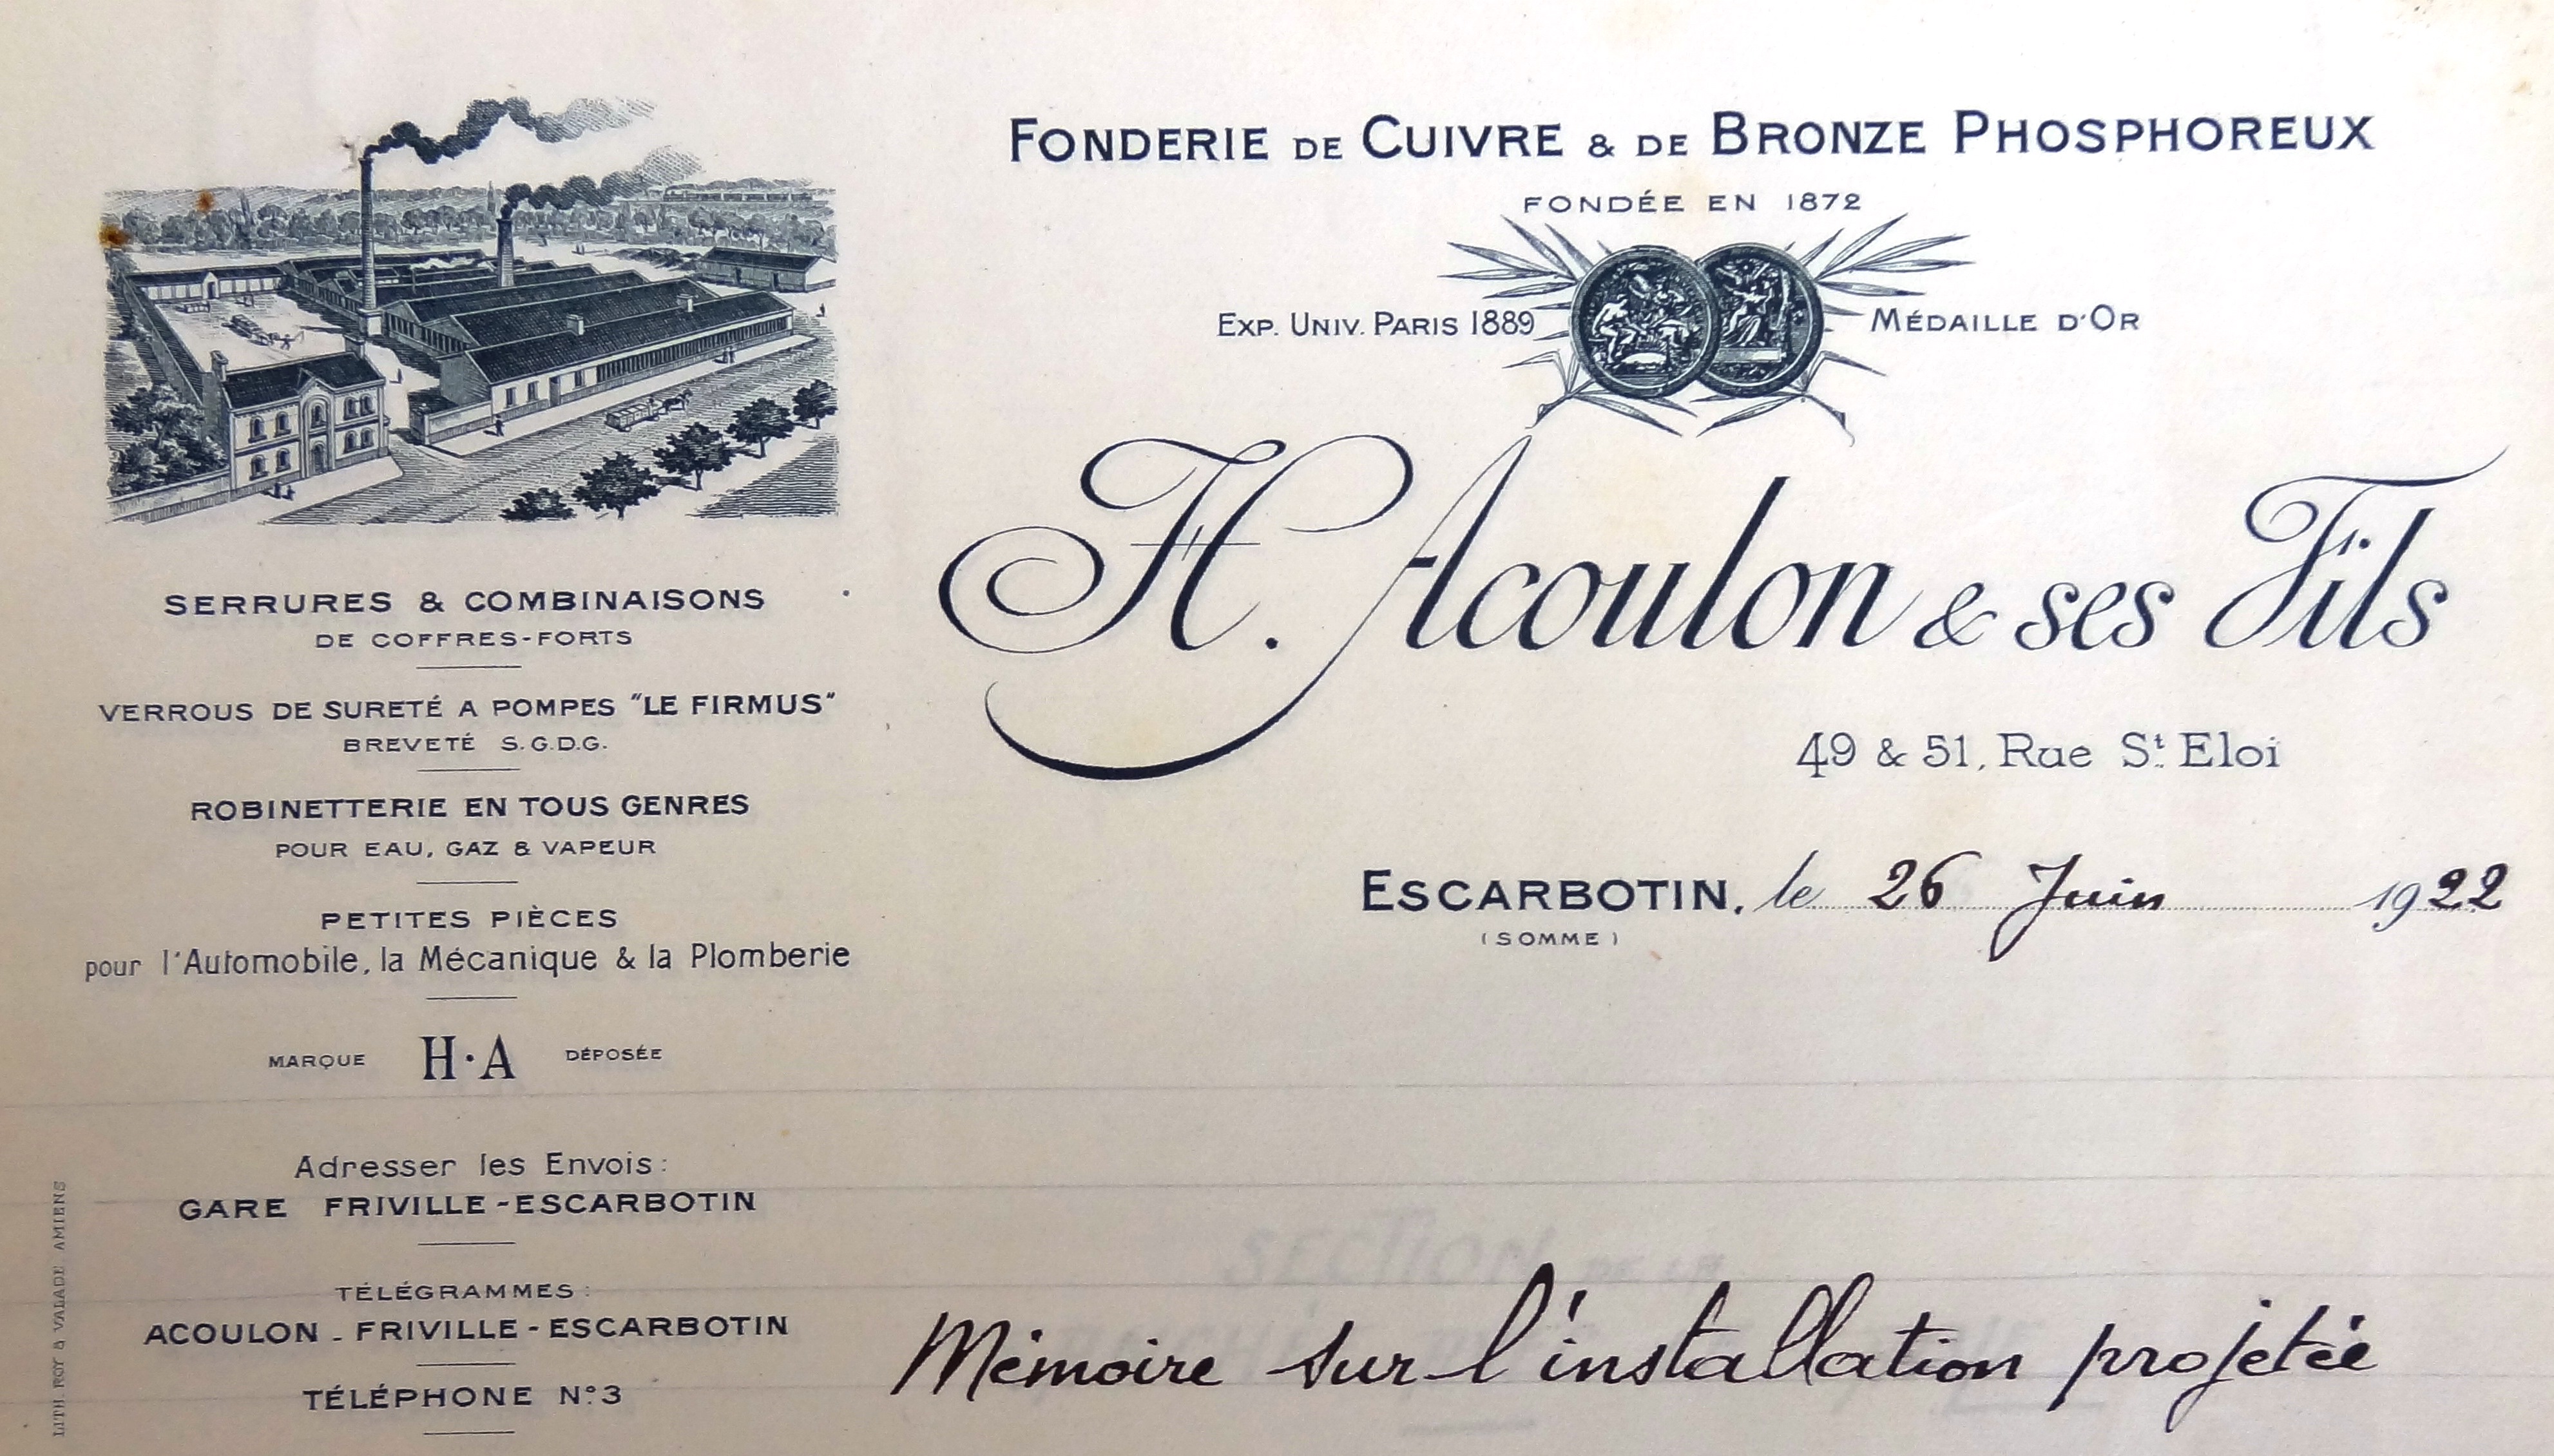 FONDERIE DE CUIVRE & DE BRONZE PHOSPHOREUX
FONDÉE EN 1872
EXP. UNIV. PARIS 1889 MÉDAILLE D'OR
H. Acoulon & ses Fils
49 & 51, Rue St. Eloi
ESCARBOTIN, le 26 Juin 1922
(SOMME)
SERRURES & COMBINAISONS
DE COFFRES-FORTS
VERROUS DE SURETÉ A POMPES "LE FIRMUS"
BREVETÉ S.G.D.G.
ROBINETTERIE EN TOUS GENRES
POUR EAU, GAZ & VAPEUR
PETITES PIÈCES
pour l'Automobile, la Mécanique & la Plomberie
MARQUE H·A DÉPOSÉE
Adresser les Envois:
GARE FRIVILLE-ESCARBOTIN
TÉLÉGRAMMES:
ACOULON - FRIVILLE-ESCARBOTIN
TÉLÉPHONE N°3
LITH. ROY & VALADE AMIENS
SECTION DE LA
Mémoire sur l'installation projetée